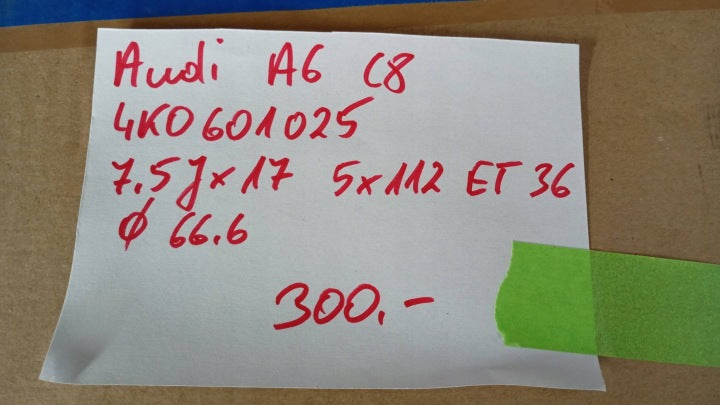 Audi A6 C8
4K0601025
7.5Jx17 5x112 ET 36
Ø 66.6
300.-